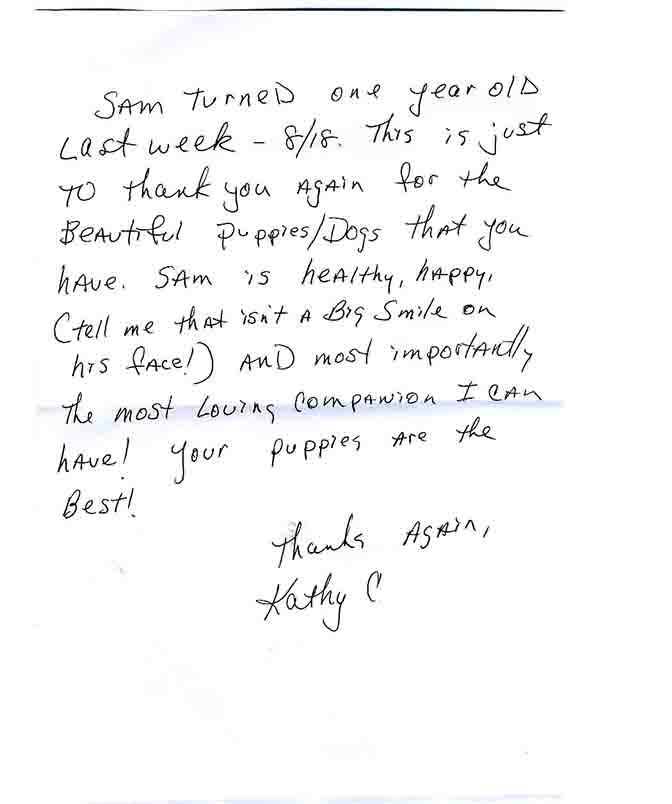 Sam turned one year old
last week - 8/18. This is just
to thank you again for the
beautiful puppies/dogs that you
have. Sam is healthy, happy,
(tell me that isn't a big smile on
his face!) and most importantly
the most loving companion I can
have! Your puppies are the
best!
Thanks again,
Kathy C